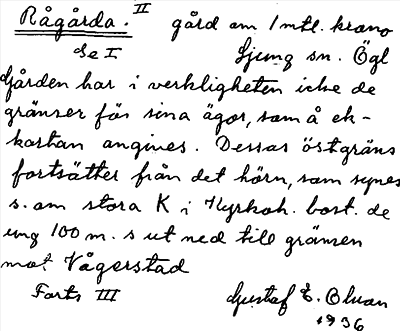 Rågårda. II gård om 1 mtl. krono
Se I Ljung sn. Ögl
Gården har i verkligheten icke de
gränser för sina ägor, som å ek-
kartan angives. Dessas östgräns
fortsätter från det hörn, som synes
s. om stora K i Kyrkoh. bost. de
ung 100 m. s ut ned till gränsen
mot Vågerstad
Forts III Gustaf E. Olsson
1936